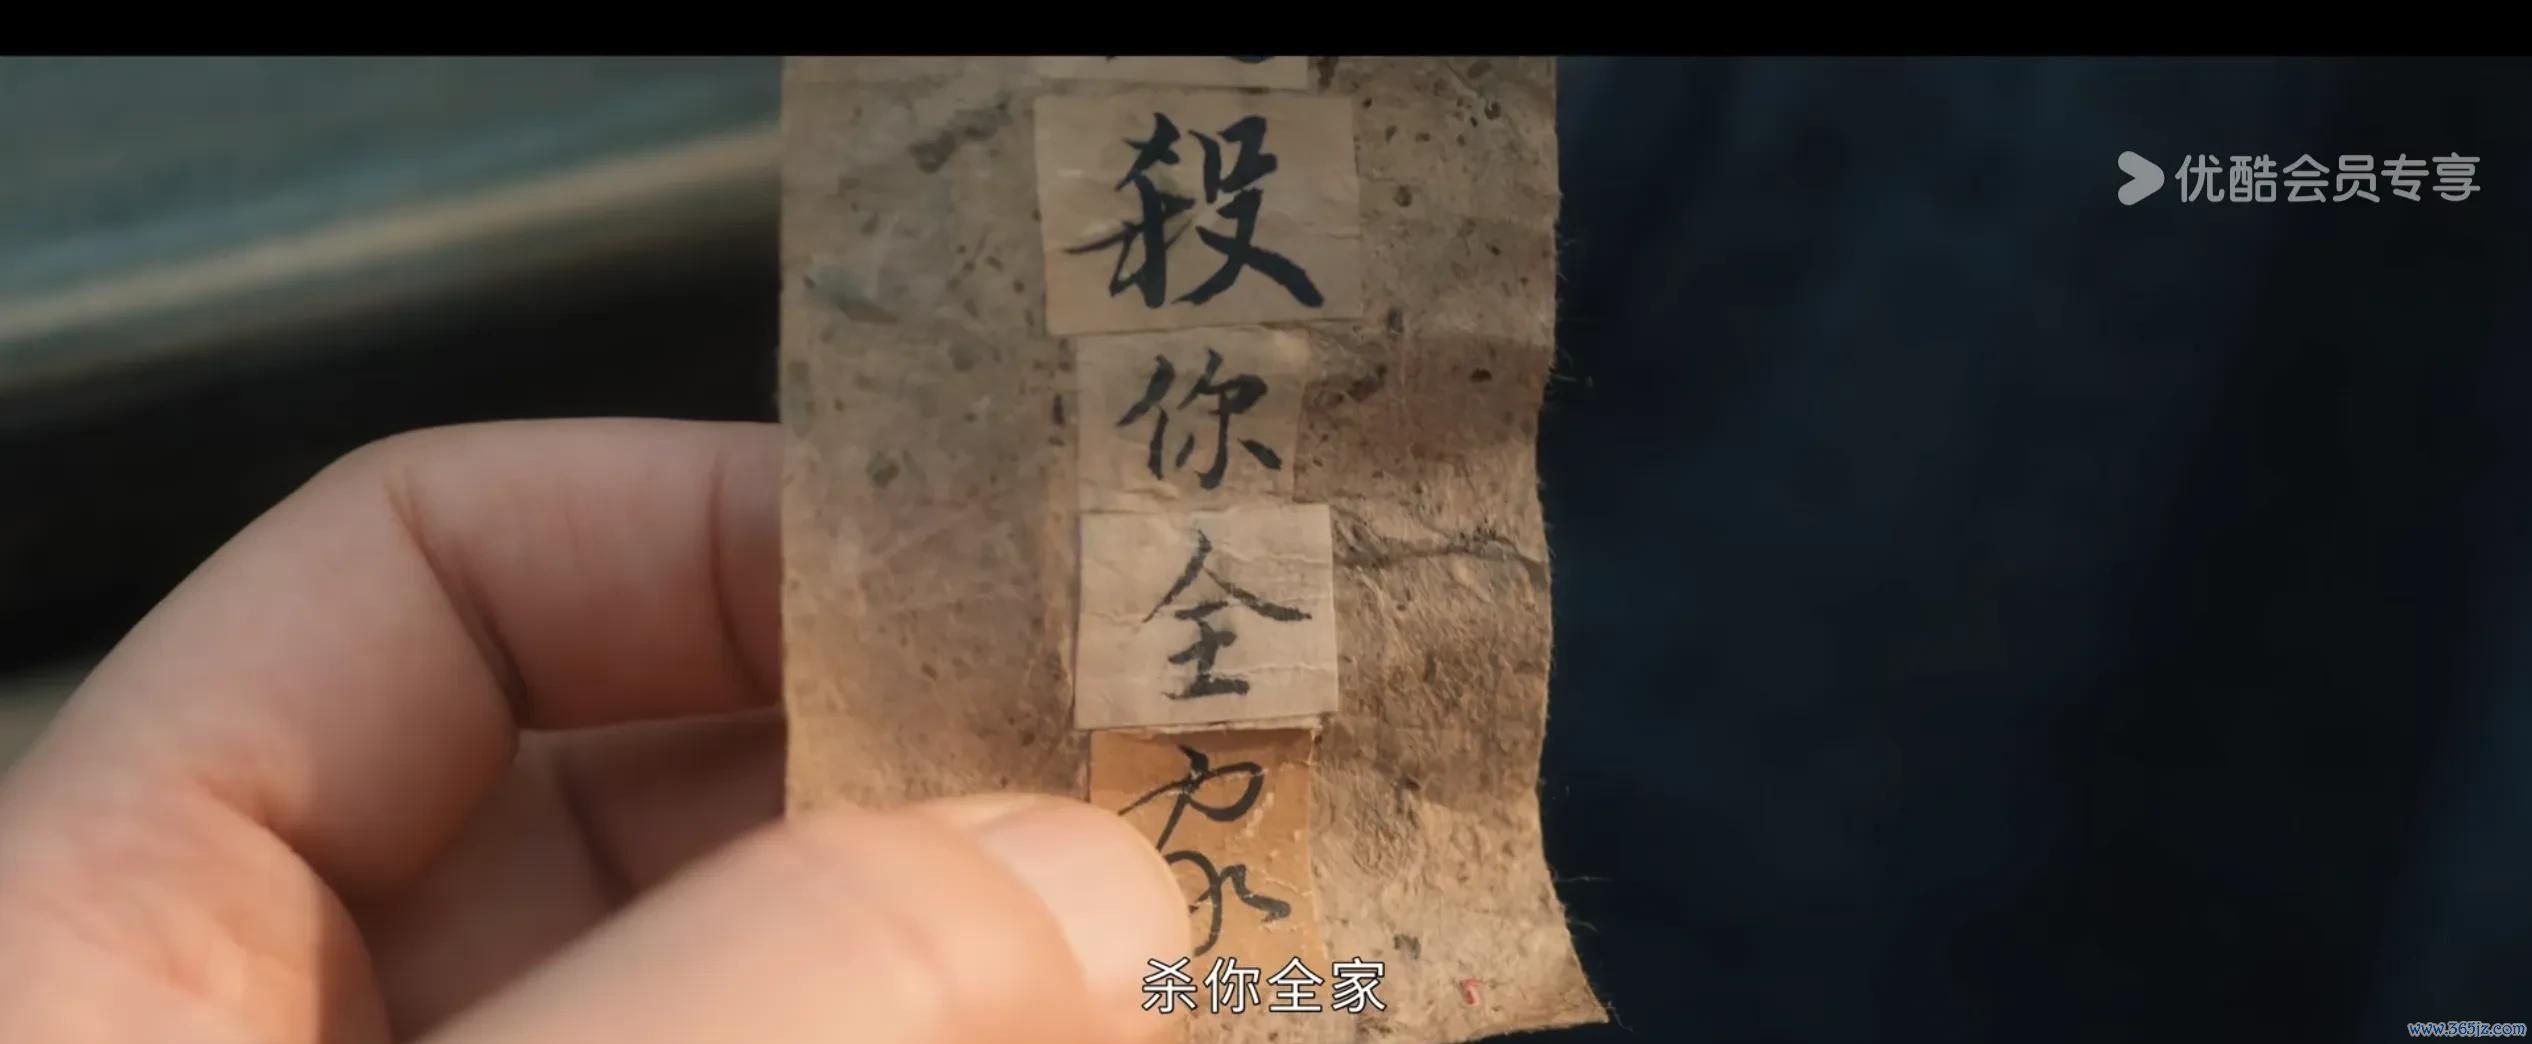 优酷会员专享
殺
你
全
家
杀你全家
www.365jz.com